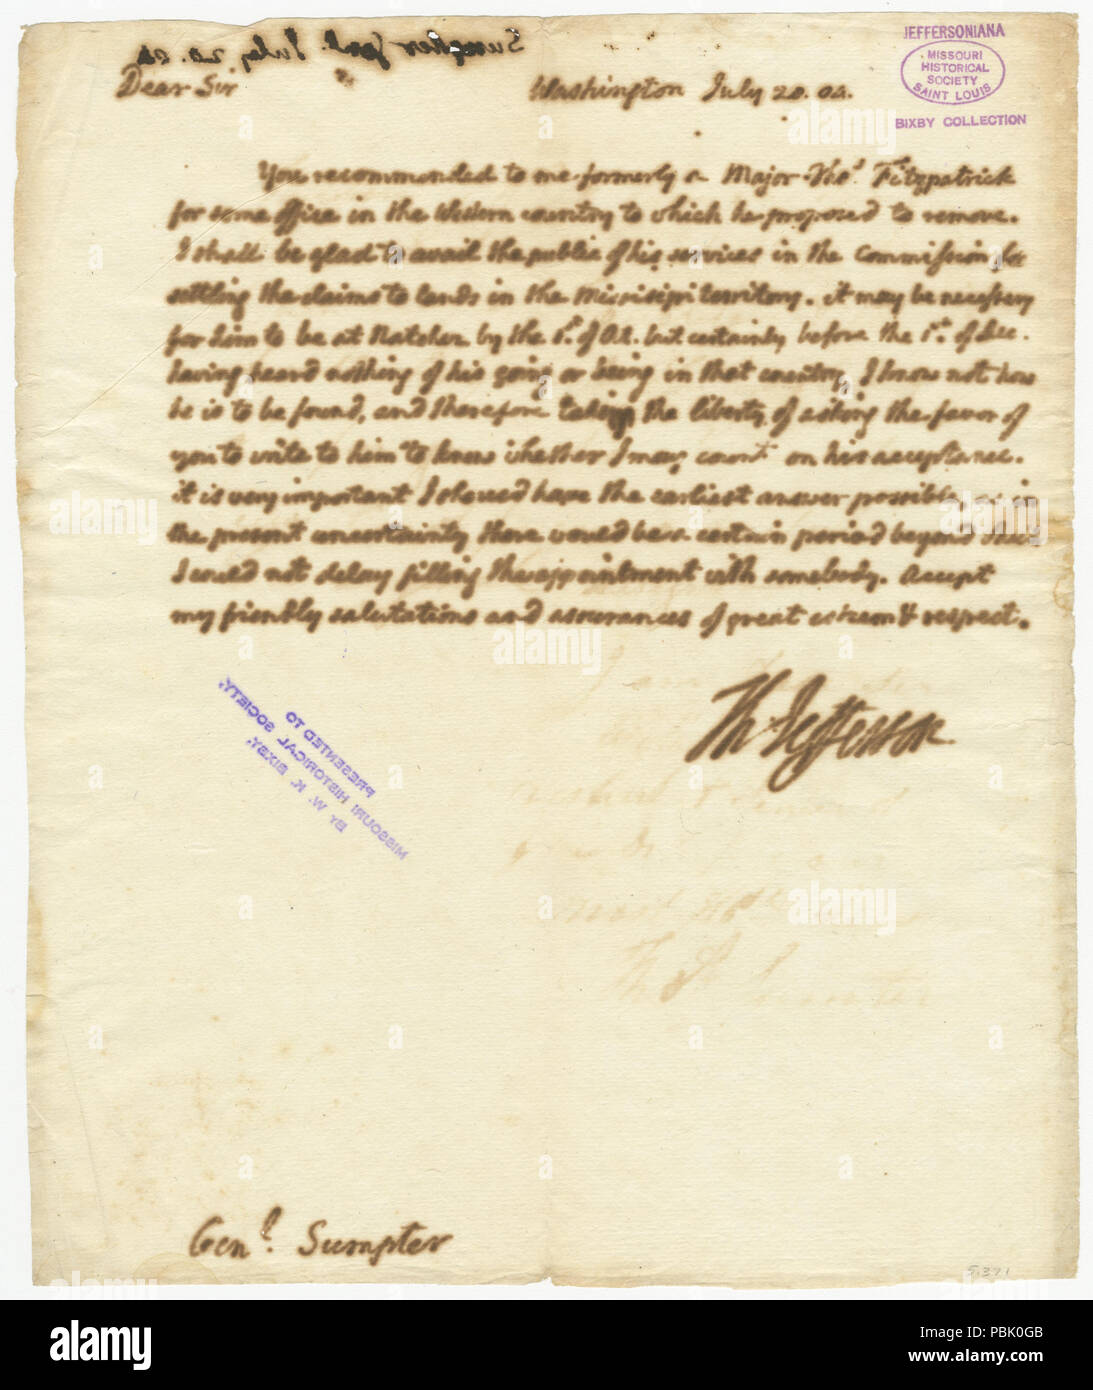 JEFFERSONIANA
MISSOURI
HISTORICAL
SOCIETY
SAINT LOUIS
BIXBY COLLECTION
Sumpter Genl. July 20. 04
Dear Sir
Washington July 20. 04.
You recommended to me formerly a Major Thos. Fitzpatrick
for some office in the Western country to which he proposed to remove.
I shall be glad to avail the public of his services in the commission for
settling the claims to lands in the Missisipi territory. it may be necessary
for him to be at Natchez by the 1st. of Oct. but certainly before the 1st. of Dec.
having heard nothing of his going or being in that country, I know not how
he is to be found, and therefore taking the liberty of asking the favor of
you to write to him to know whether I may count on his acceptance.
it is very important I should have the earliest answer possible, as in
the present uncertainty there would be a certain period beyond which
I could not delay filling the appointment with somebody. Accept
my friendly salutations and assurances of great esteem & respect.
Th: Jefferson
PRESENTED TO
MISSOURI HISTORICAL SOCIETY,
BY W. K. BIXBY.
Genl. Sumpter
5.371
alamy
Image ID: PBK0GB
www.alamy.com